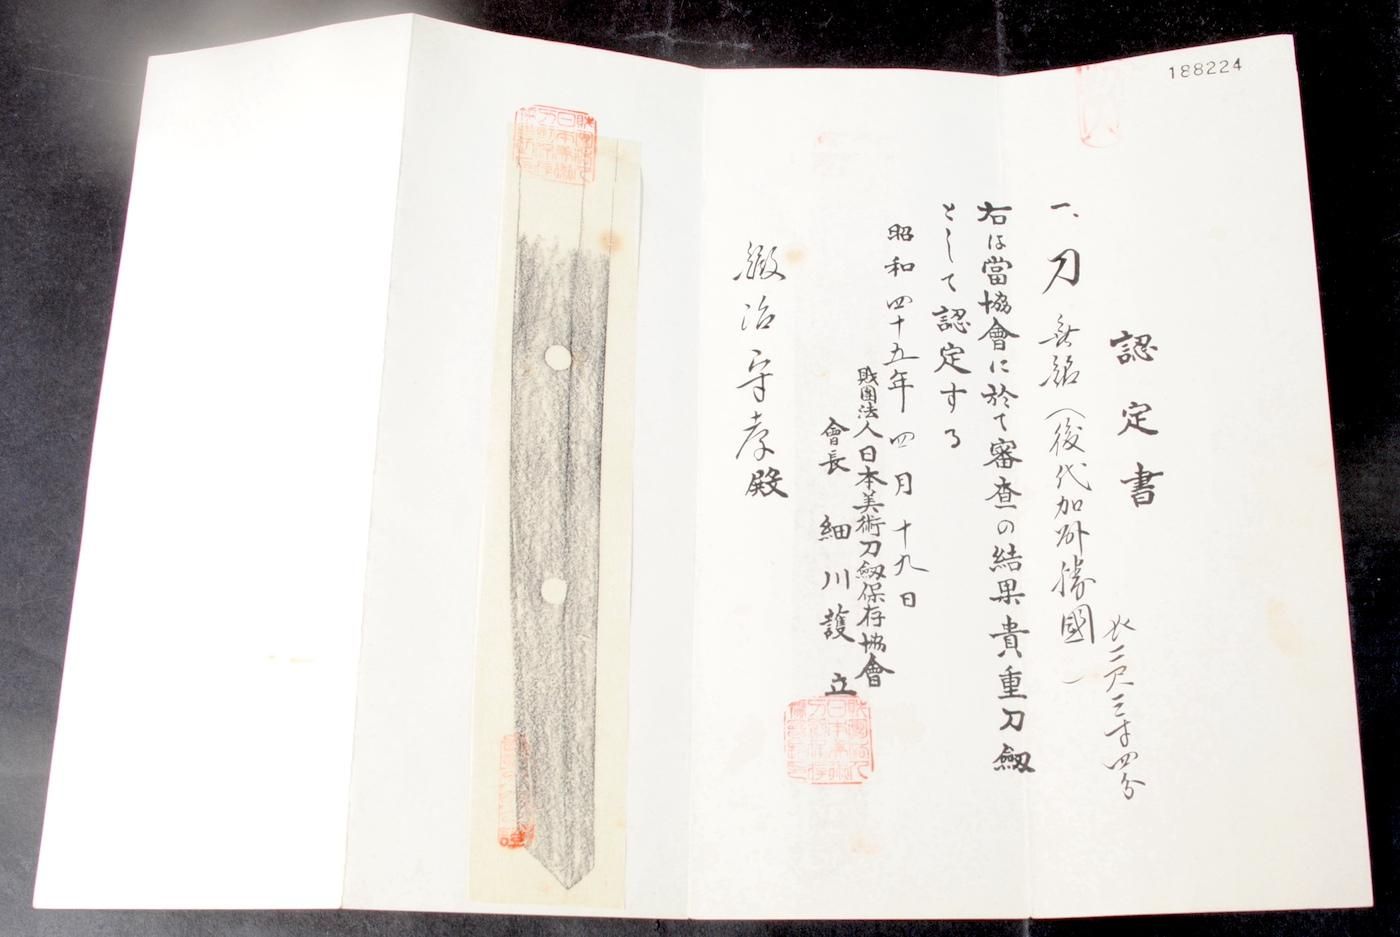 188224
認定書
一、刀 無銘（後代加州勝國）
長二尺三寸四分
右は當協會に於て審査の結果貴重刀劔
として認定する
昭和四十五年四月十九日
財團法人日本美術刀劔保存協會
會長 細川護立
鍛治守孝殿